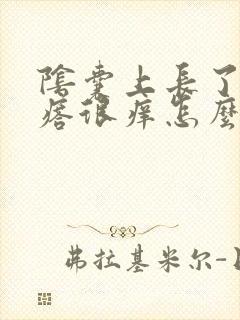 陰囊上長了
痞很痒怎麼
弗拉基米尔-